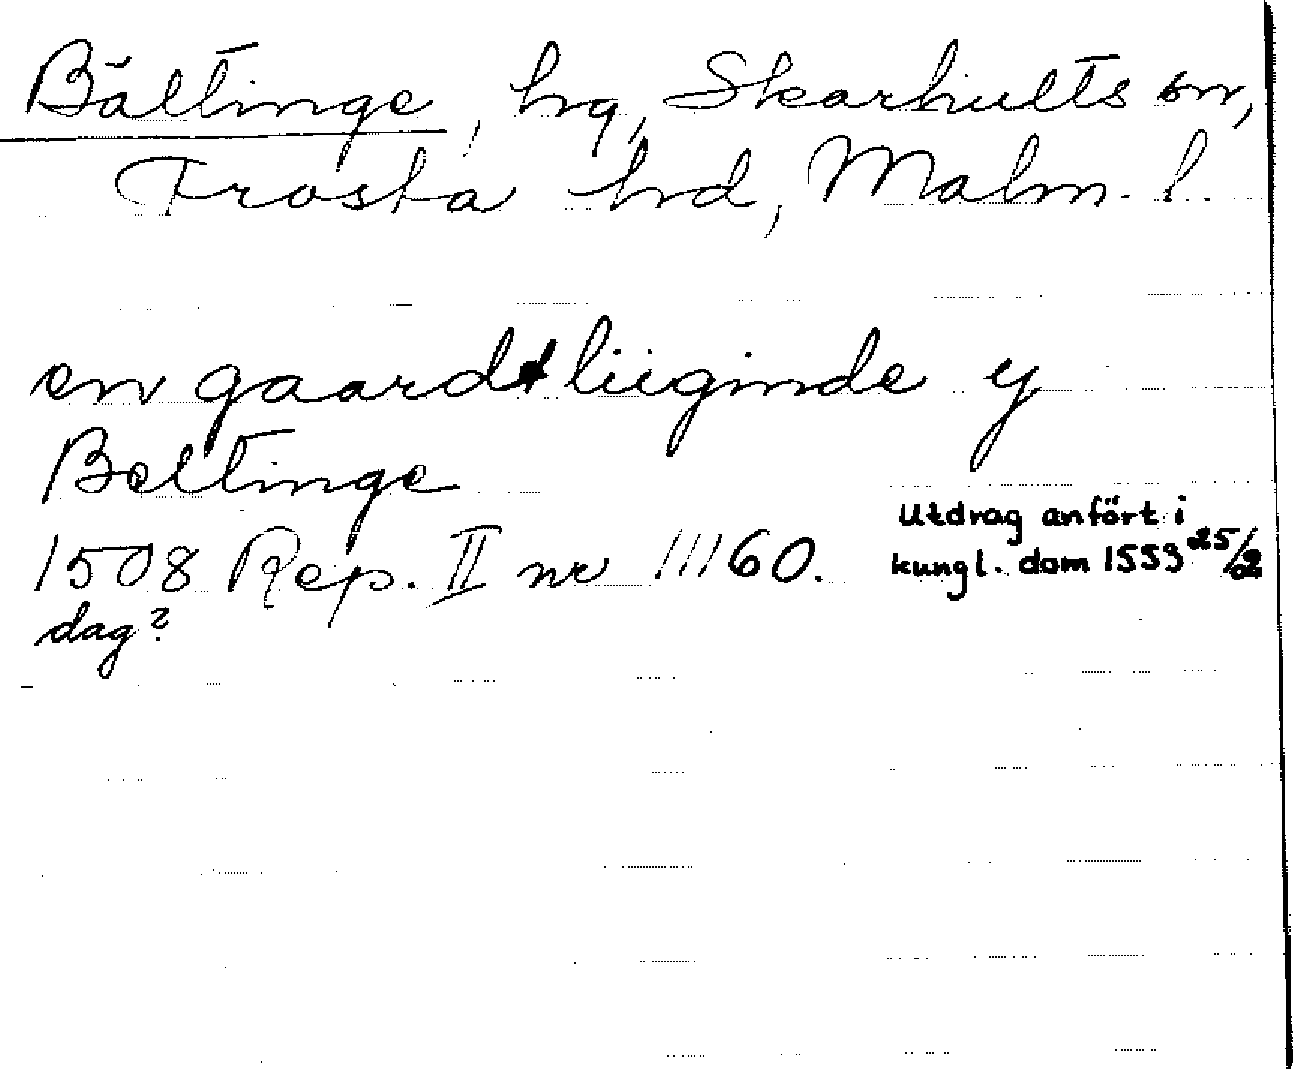 Bältinge, hg, Skarhults sn,
Frosta hd, Malm. l.
en gaard liiginde y
Beltinge
1508 Rep. II nr 11160.
dag?
Utdrag anfört i
kungl. dom 1553 25/2